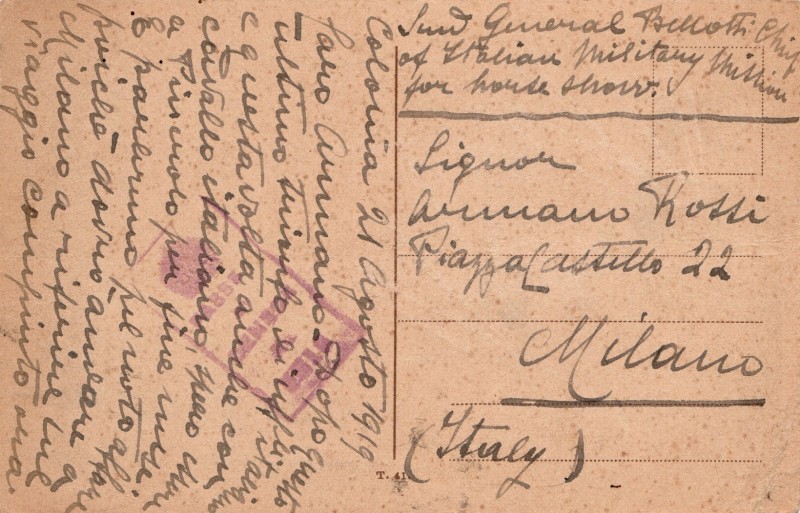 Colonia 21 Agosto 1919
Caro Armano - Dopo questo
ultimo trionfo di
e questa volta anche con
cavallo italiano, spero
a Pinerolo per fine mese.
E parleremo
poichè dovrò andare
Milano a riferire sul
viaggio compiuto ora.
Send General Bellotti Chief
of Italian Military Mission
for horse show.
Signor
Armano Rossi
Piazza Castello 22
Milano
(Italy)
T. 41